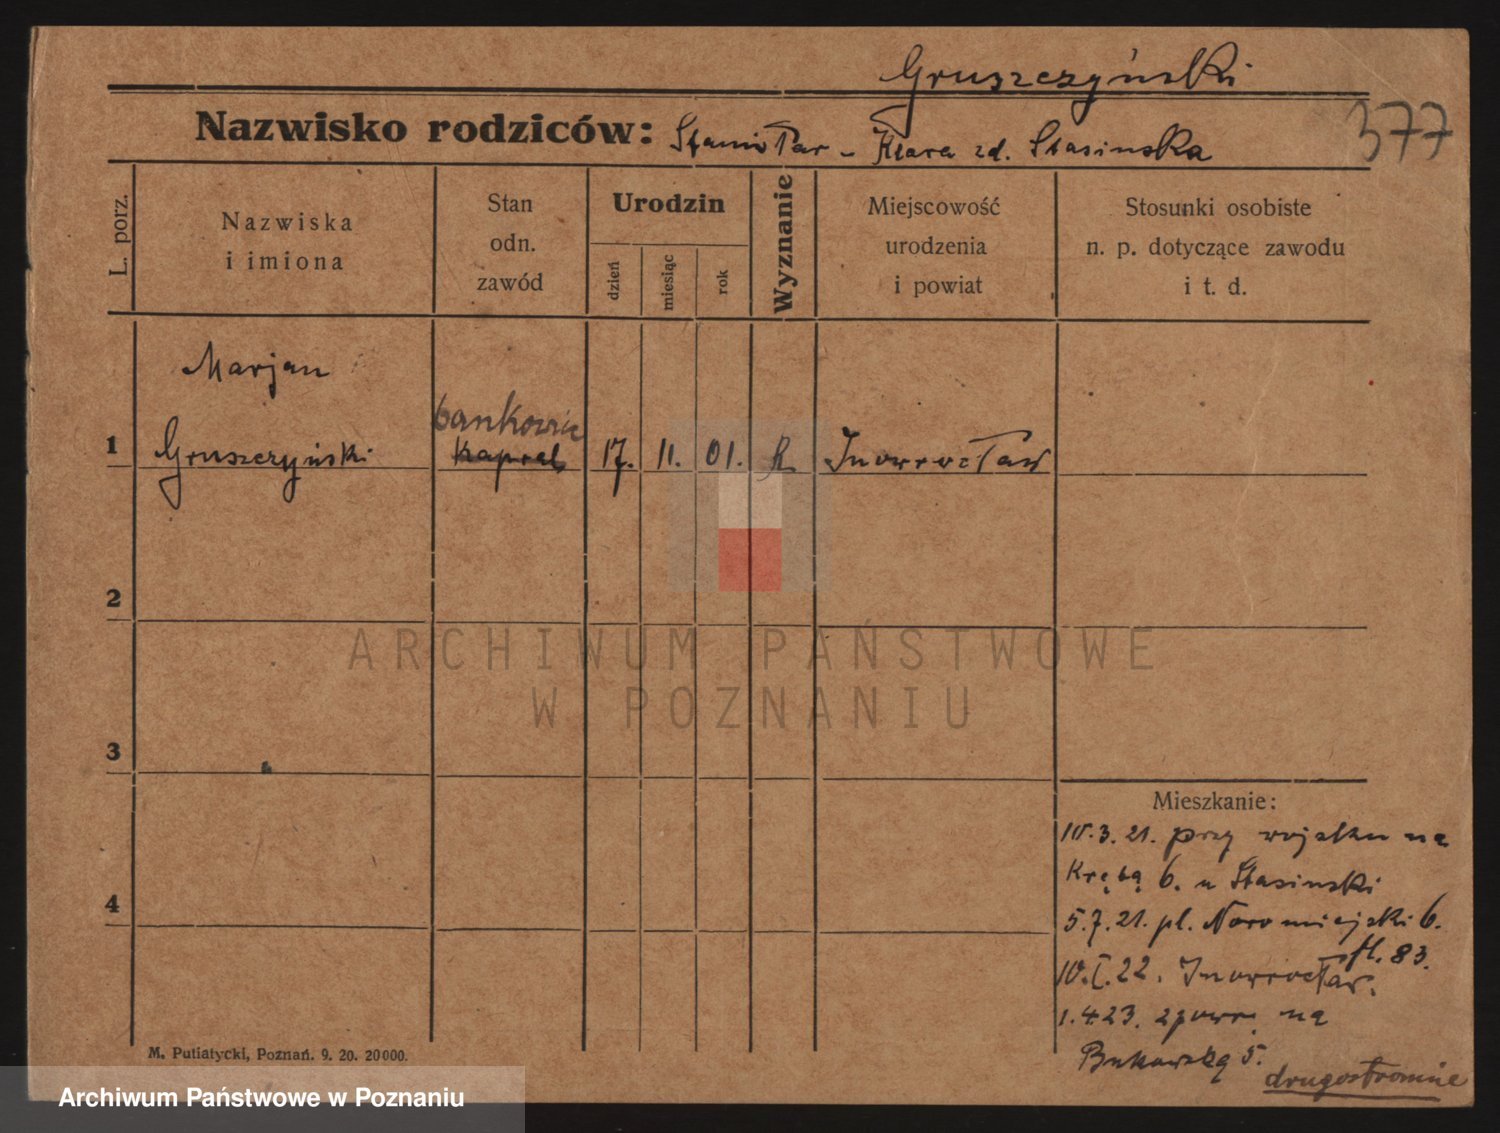 Gruszczyński
377
Nazwisko rodziców: Stanisław - Klara zd. Stasinska
L. porz.
Nazwiska
i imiona
Stan
odn.
zawód
Urodzin
dzień
miesiąc
rok
Wyznanie
Miejscowość
urodzenia
i powiat
Stosunki osobiste
n. p. dotyczące zawodu
i t. d.
Marjan
bankowiec
1 Gruszczyński kapral 17. 11. 01. K Inowrocław
2
ARCHIWUM PAŃSTWOWE
W POZNANIU
3
Mieszkanie:
10.3.21. przy wojsku na
Krętą 6. u Stasinski
4
5.7.21. pl. Nowomiejski 6.
fl. 83.
10.I.22. Inowrocław.
1.4.23. zpowr. na
Bukowską 5.
drugostronnie
M. Putiatycki, Poznań. 9. 20. 20000.
Archiwum Państwowe w Poznaniu